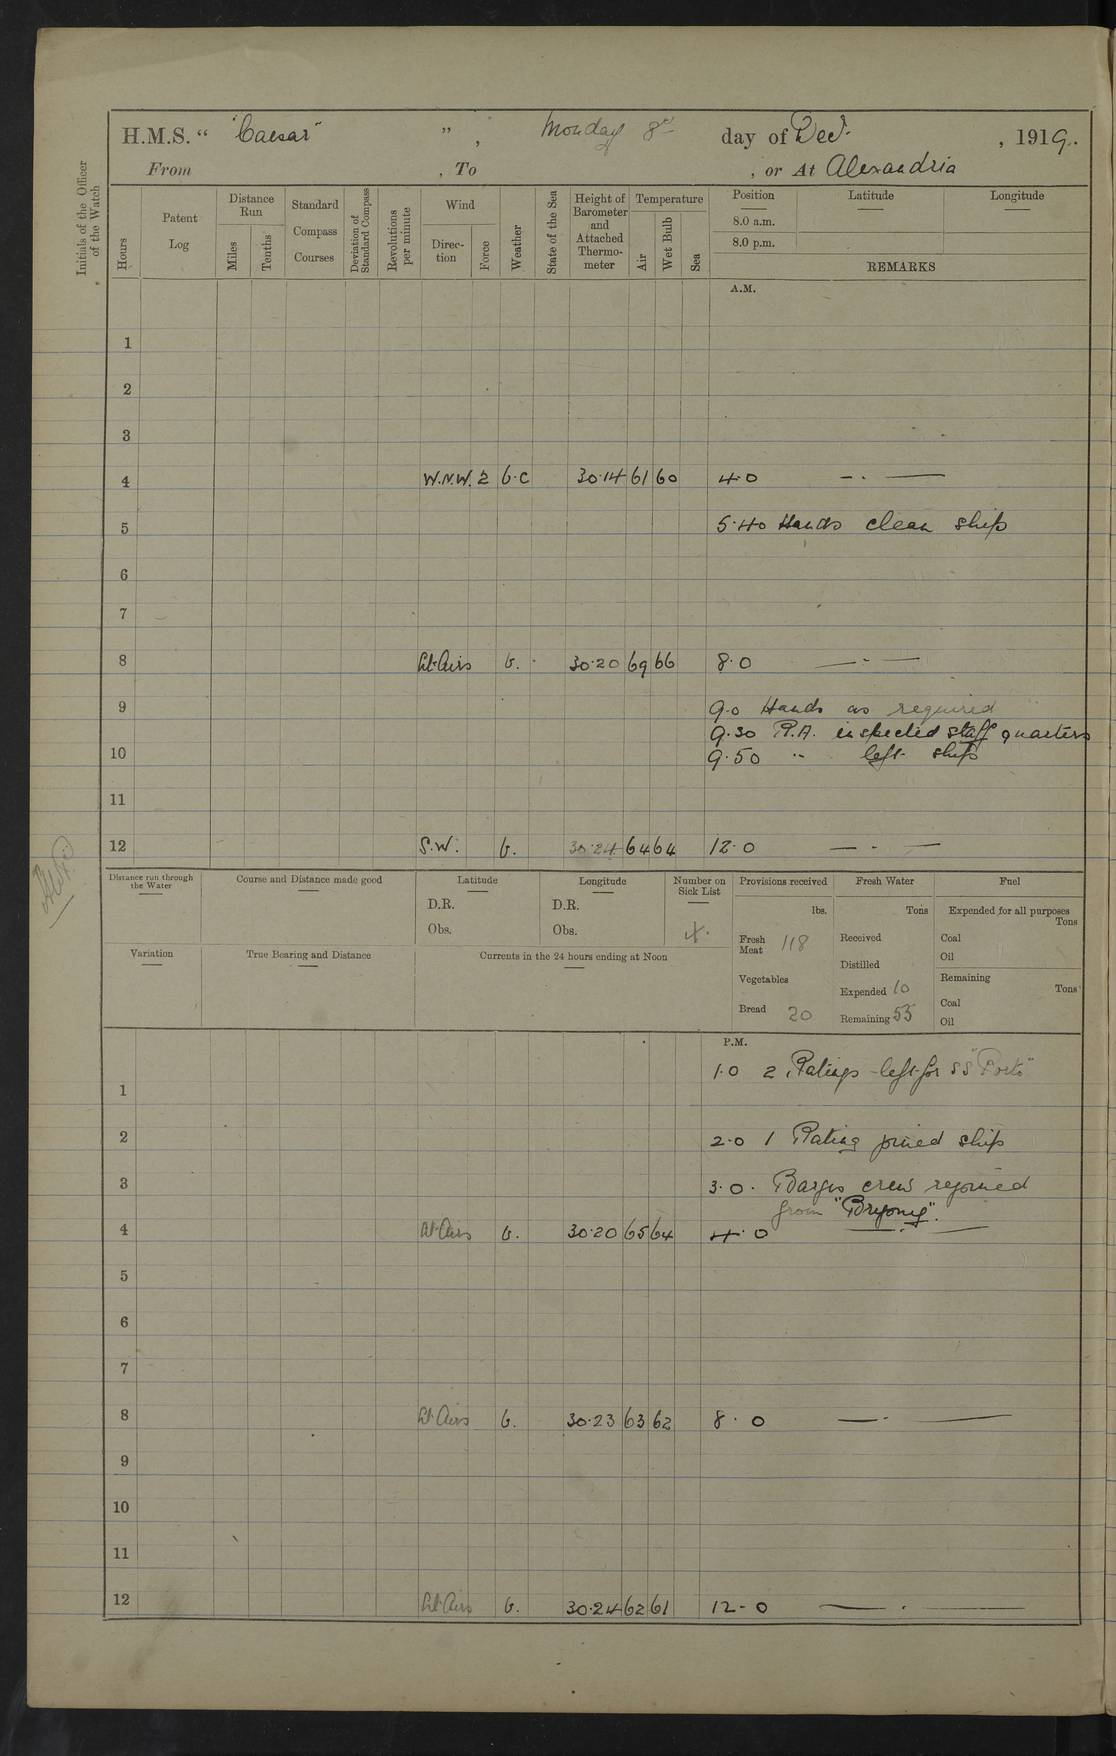 H.M.S. " "Caesar" " , Monday 8th day of Dec. , 1919.
From , To , or At Alexandria
Initials of the Officer of the Watch
Hours
Patent Log
Distance Run
Miles
Tenths
Standard Compass Courses
Deviation of Standard Compass
Revolutions per minute
Wind
Direction
Force
Weather
State of the Sea
Height of Barometer and Attached Thermometer
Temperature
Air
Wet Bulb
Sea
Position Latitude Longitude
8.0 a.m.
8.0 p.m.
REMARKS
A.M.
1
2
3
4 W.N.W. 2 b.c 30.14 61 60 4.0 — . —
5 5.40 Hands clean ship
6
7
8 Lt. Airs b. 30.20 69 66 8.0 — . —
9 9.0 Hands as required
9.30 R.A. inspected staff quarters
10 9.50 " left ship
11
12 S.W. b. 30.24 64 64 12.0 — . —
Distance run through the Water
Course and Distance made good
Latitude
D.R.
Obs.
Longitude
D.R.
Obs.
Number on Sick List
4.
Provisions received
lbs.
Fresh Meat 118
Vegetables
Bread 20
Fresh Water
Tons
Received
Distilled
Expended 10
Remaining 55
Fuel
Expended for all purposes
Tons
Coal
Oil
Remaining
Tons
Coal
Oil
Variation
True Bearing and Distance
Currents in the 24 hours ending at Noon
P.M.
1 1.0 2 Ratings left for SS "Porto"
2 2.0 1 Rating joined ship
3 3.0. Barges crew rejoined
from "Bryony".
4 Lt. Airs b. 30.20 65 64 4.0 — . —
5
6
7
8 Lt. Airs b. 30.23 63 62 8.0 — . —
9
10
11
12 Lt. Airs b. 30.24 62 61 12-0 — . —